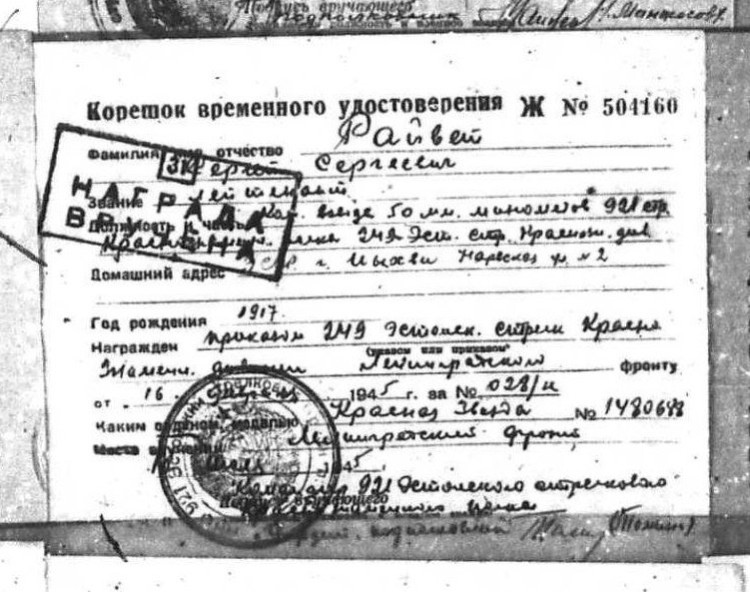 Подпись вручающего
подполковник
Корешок временного удостоверения Ж № 504160
Райвет
Фамилия отчество Сергей Сергеевич
НАГРАДА
ВРУЧЕНА
Звание лейтенант
Должность и часть Ком. взвода 50 мм. минометов 921 стр.
Краснознамен. полка 249 Эст. стр. Краснозн. див
Домашний адрес г. Иыхви Нарвская ул. 2
Год рождения 1917
Награжден приказом 249 Эстонск. стрелк Красно
(указом или приказом)
Знамен. дивизии Ленинградского фронту
от 16 февраля 1945 г. за № 028/н
Каким орденом, медалью Красная Звезда № 1480688
Место вручения Ленинградский фронт
1945
Командир 921 Эстонского стрелкового
Подпись вручающего
Краснознаменного полка
подполковник